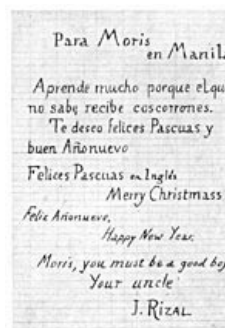 Para Moris
en Manil
Aprende mucho porque el qu
no sabe recibe coscorrones.
Te deseo felices Pascuas y
buen Añonuevo
Felices Pascuas en Inglés
Merry Christmass
Feliz Añonuevo,
Happy New Year,
Moris, you must be a good bo
Your uncle
J. RIZAL